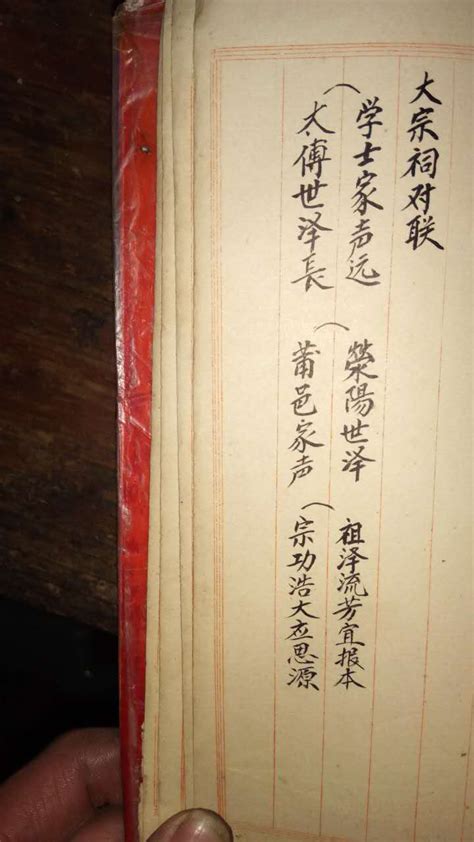 大宗祠对联
学士家声远
太傅世泽長
荥陽世泽
莆邑家声
祖泽流芳宜报本
宗功浩大应思源